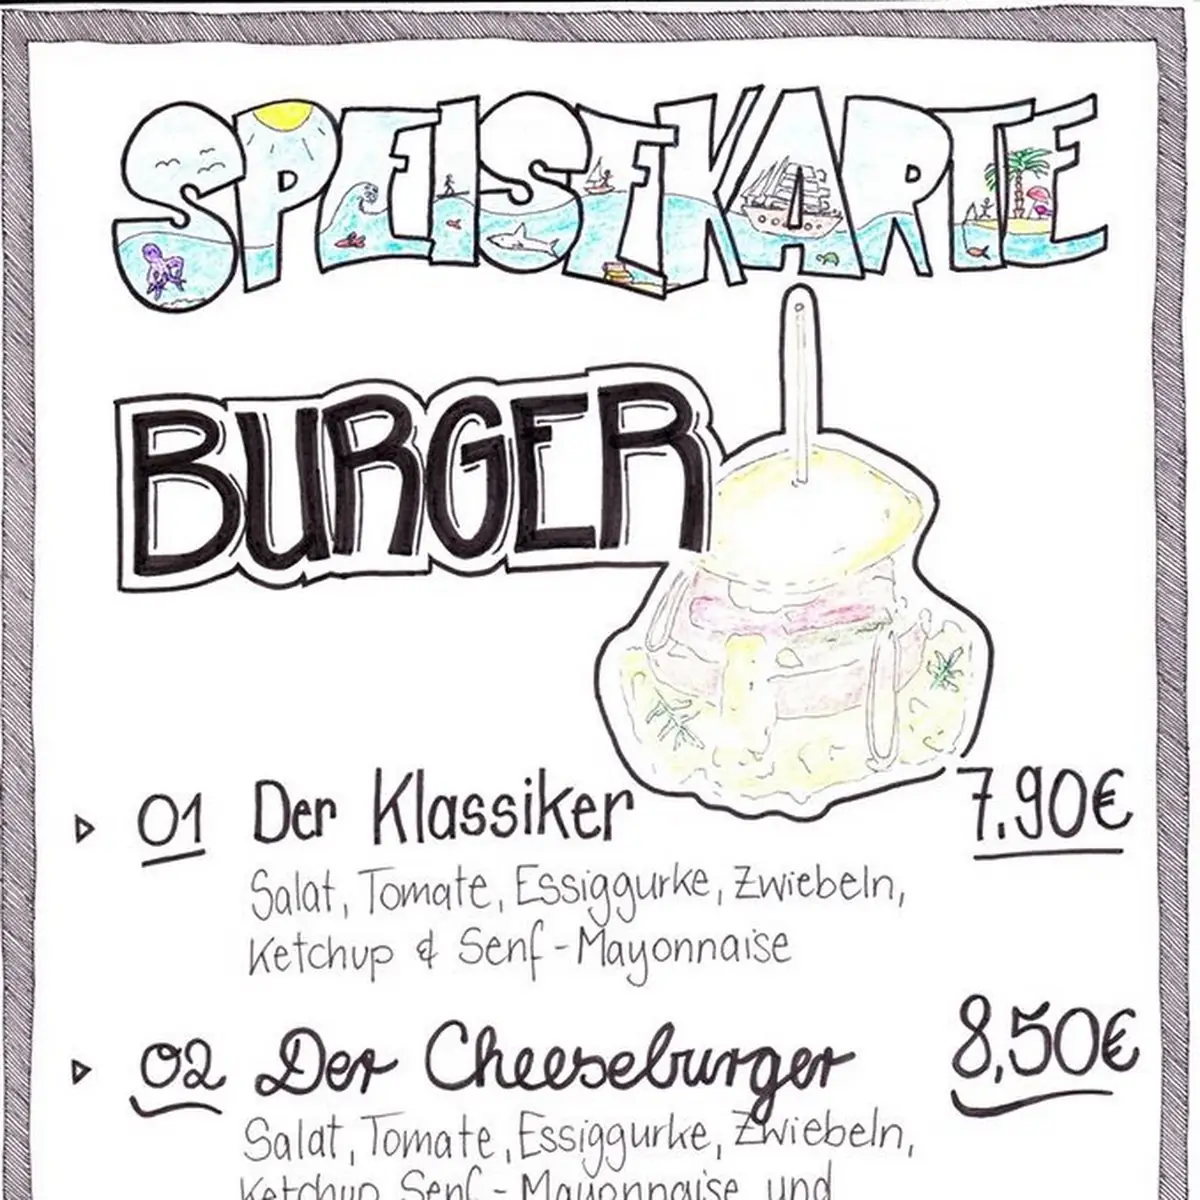 SPEISEKARTE
BURGER
01 Der Klassiker 7.90€
Salat, Tomate, Essiggurke, Zwiebeln,
Ketchup & Senf-Mayonnaise
02 Der Cheeseburger 8,50€
Salat, Tomate, Essiggurke, Zwiebeln,
Ketchup, Senf-Mayonnaise und